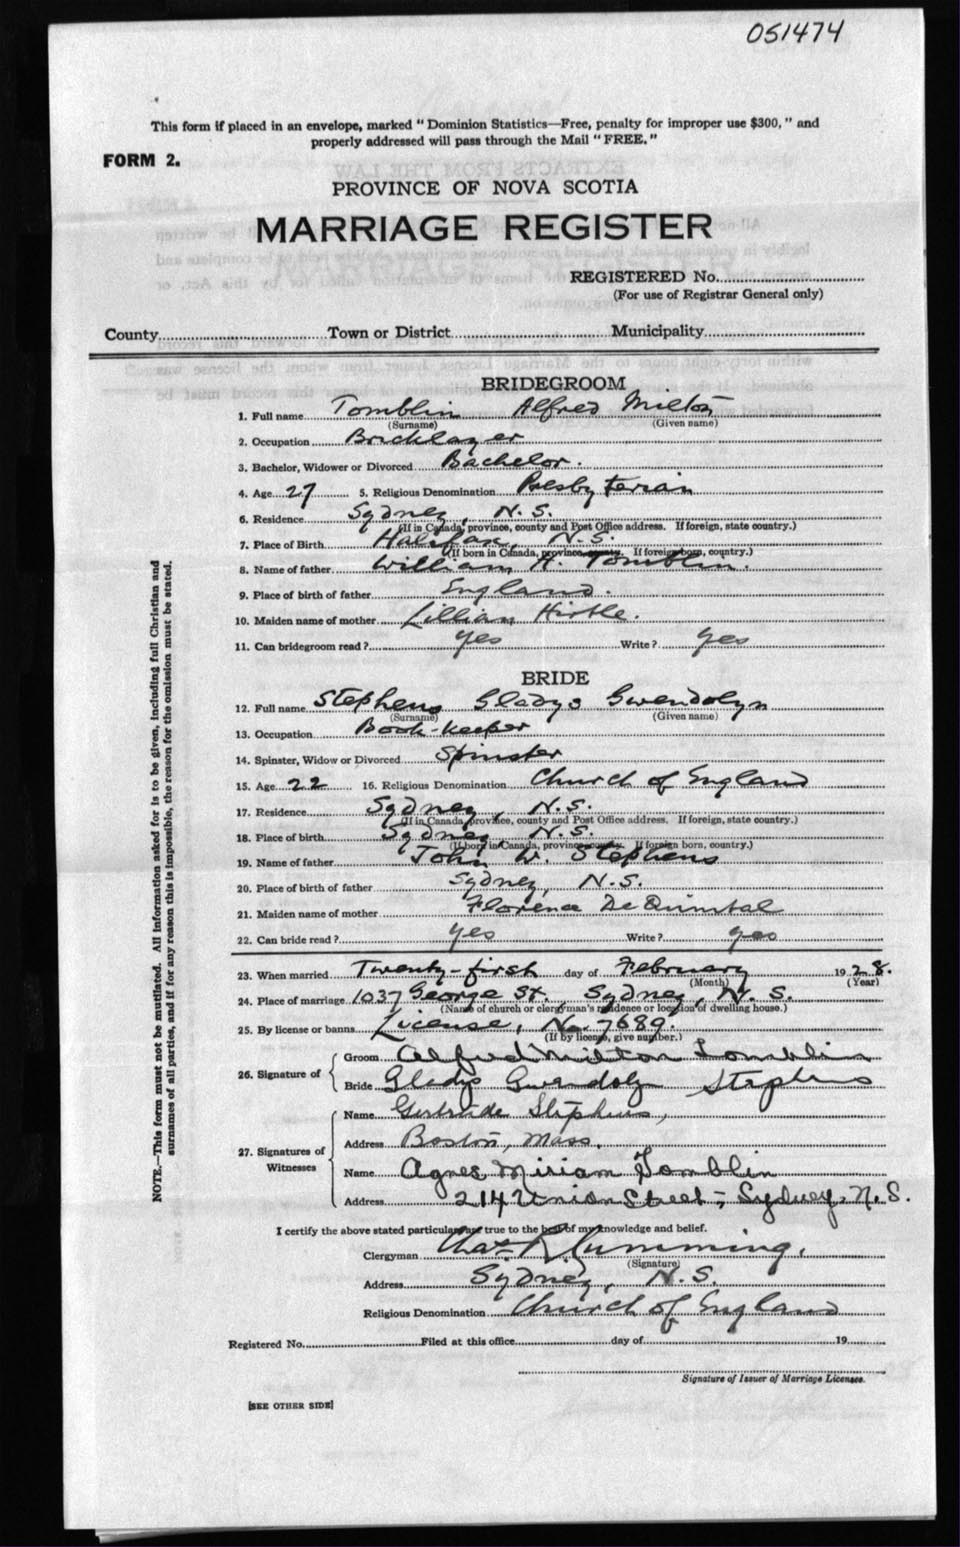 051474
This form if placed in an envelope, marked "Dominion Statistics—Free, penalty for improper use $300," and
properly addressed will pass through the Mail "FREE."
FORM 2.
PROVINCE OF NOVA SCOTIA
MARRIAGE REGISTER
REGISTERED No.
(For use of Registrar General only)
County Town or District Municipality
BRIDEGROOM
1. Full name Tomblin Alfred Milton
(Surname) (Given name)
2. Occupation Bricklayer
3. Bachelor, Widower or Divorced Bachelor.
4. Age 27 5. Religious Denomination Presbyterian
6. Residence Sydney, N.S.
(If in Canada, province, county and Post Office address. If foreign, state country.)
7. Place of Birth Halifax, N.S.
(If born in Canada, province, county. If foreign born, country.)
8. Name of father William H. Tomblin.
9. Place of birth of father England.
10. Maiden name of mother Lillian Hirtle.
11. Can bridegroom read? yes Write? yes
BRIDE
12. Full name Stephens Gladys Gwendolyn
(Surname) (Given name)
13. Occupation Book-keeper
14. Spinster, Widow or Divorced Spinster
15. Age 22 16. Religious Denomination Church of England
17. Residence Sydney, N.S.
(If in Canada, province, county and Post Office address. If foreign, state country.)
18. Place of birth Sydney N.S.
(If born in Canada, province, county. If foreign born, country.)
19. Name of father John W. Stephens
20. Place of birth of father Sydney, N.S.
21. Maiden name of mother Florence
22. Can bride read? yes Write? yes
23. When married Twenty-first day of February 1928.
(Month) (Year)
24. Place of marriage 1037 George St., Sydney, N.S.
(Name of church or clergyman's residence or location of dwelling house.)
25. By license or banns License, No. 7689.
(If by license, give number.)
26. Signature of Groom Alfred Milton Tomblin
Bride Gladys Gwendolyn Stephens
27. Signatures of Witnesses Name Gertrude Stephens,
Address Boston, Mass.
Name Agnes Miriam Tomblin
Address 214 Union Street, Sydney, N.S.
I certify the above stated particulars are true to the best of my knowledge and belief.
Clergyman Chas R Cumming,
(Signature)
Address Sydney, N.S.
Religious Denomination Church of England
Registered No. Filed at this office day of 19
Signature of Issuer of Marriage Licenses.
[SEE OTHER SIDE]
NOTE.—This form must not be mutilated. All information asked for is to be given, including full Christian and
surnames of all parties, and if for any reason this is impossible, the reason for the omission must be stated.